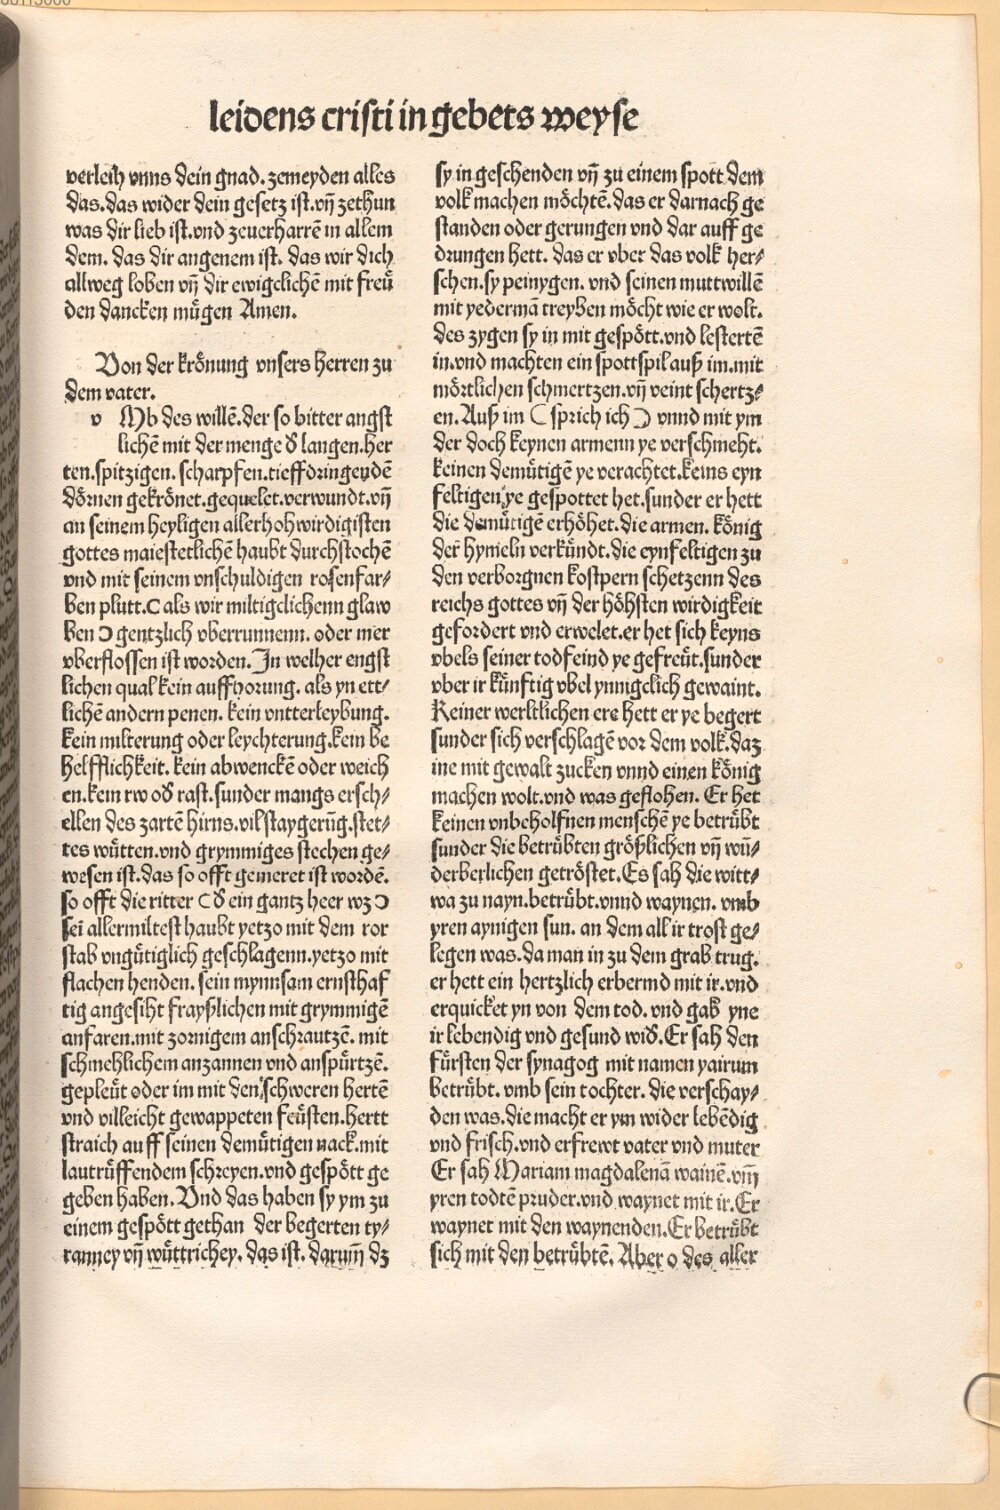 leidens cristi in gebets weyse
verleih vnns dein gnad. zemeyden alles
das. das wider dein gesetz ist. vn̄ zethun
was dir lieb ist. vnd zeuerharrē in allem
dem. das dir angenem ist. das wir dich
allweg loben vn̄ dir ewigclichē mit freü
den dancken mügen Amen.
Von der krönung vnsers herren zu
dem vater.
v Mb des willē. der so bitter angst
lichē mit der menge d̄ langen. her
ten. spitzigen. scharpfen. tieffdringeydē
dörnen gekrönet. gequelet. verwundt. vn̄
an seinem heyligen allerhohwirdigisten
gottes maiestetlichē haubt durchstochē
vnd mit seinem vnschuldigen rosenfar⸗
ben plutt. ( als wir miltigclichenn glaw
ben ) gentzlich vberrunnenn. oder mer
vberflossen ist worden. In welher engst
lichen qual kein auffhorung. als yn ett⸗
lichē andern penen. kein vntterleybung.
kein milterung oder leychterung. kein be
helfflichkeit. kein abwenckē oder weich
en. kein rw od̄ rast. sunder mangs ersch⸗
ellen des zartē hirns. vil staygerūg. stet⸗
tes wütten. vnd grymmiges stechen ge⸗
wesen ist. das so offt gemeret ist wordē.
so offt die ritter ( d̄ ein gantz heer wz )
sei allermiltest haubt yetzo mit dem ror
stab vngütiglich geschlagenn. yetzo mit
flachen henden. sein mynnsam ernsthaf
tig angesiht frayßlichen mit grymmigē
anfaren. mit zornigem anschrautzē. mit
schmehlichem anzannen vnd anspürtzē.
gepleüt oder im mit den schweren hertē
vnd villeicht gewappeten feüsten. hertt
straich auff seinen demütigen nack. mit
lautrüffendem schreyen. vnd gespött ge
geben haben. Vnd das haben sy ym zu
einem gespött gethan der begerten ty⸗
ranney vn̄ wüttrichey. das ist. darum̄ dz
sy in geschenden vn̄ zu einem spott dem
volk machen möchtē. das er darnach ge
standen oder gerungen vnd dar auff ge
drungen hett. das er vber das volk her⸗
schen. sy peinygen. vnd seinen muttwillē
mit yedermā treyben möcht wie er wolt.
des zygen sy in mit gespött. vnd lestertē
in. vnd machten ein spottspil auß im. mit
mörtlichen schmertzen. vn̄ veint schertz⸗
en. Auß im ( sprich ich ) vnnd mit ym
der doch keynen armenn ye verschmeht.
keinen demütigē ye verachtet. keins eyn
feltigen ye gespottet het. sunder er hett
die demütigē erhöhet. die armen. könig
der hymeln verkündt. die eynfeltigen zu
den verborgnen kostpern schetzenn des
reichs gottes vn̄ der höhsten wirdigkeit
gefordert vnd erwelet. er het sich keyns
vbels seiner todfeind ye gefreüt. sunder
vber ir künftig vbel ynnigclich gewaint.
Keiner werltlichen ere hett er ye begert
sunder sich verschlagē vor dem volk. daz
ine mit gewalt zucken vnnd einen könig
machen wolt. vnd was geflohen. Er het
keinen vnbeholfnen menschē ye betrübt
sunder die betrübten größlichen vn̄ wū⸗
derberlichen getröstet. Es sah die witt⸗
wa zu nayn. betrübt. vnnd waynen. vmb
yren aynigen sun. an dem all ir trost ge⸗
legen was. da man in zu dem grab trug.
er hett ein hertzlich erbermd mit ir. vnd
erquicket yn von dem tod. vnd gab yne
ir lebendig vnd gesund wid̄. Er sah den
fürsten der synagog mit namen yairum
betrübt. vmb sein tochter. die verschay⸗
den was. die macht er ym wider lebēdig
vnd frisch. vnd erfrewt vater vnd muter
Er sah Mariam magdalenā wainē. vm̄
yren todtē pruder. vnd waynet mit ir. Er
waynet mit den waynenden. Er betrübt
sich mit den betrübtē. Aber o des aller